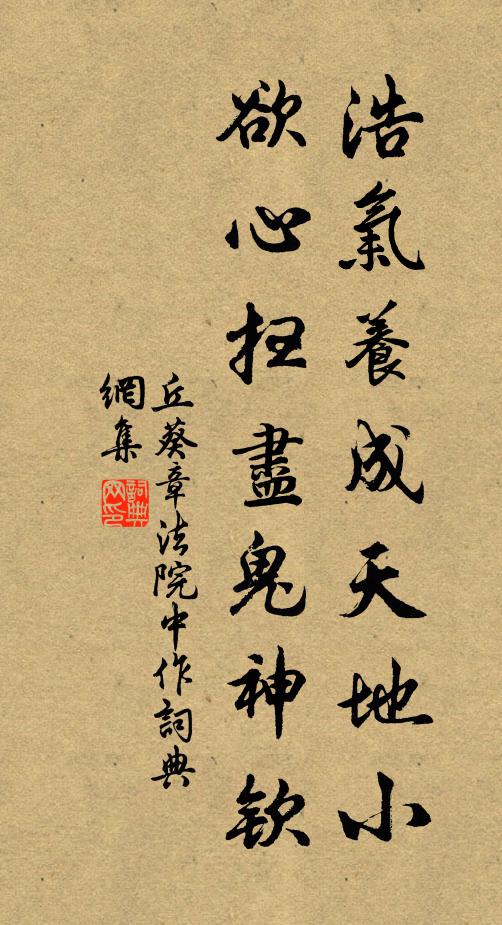 浩氣養成天地小
欲心扫盡鬼神欽
丘葵章法院中作詞典
網集
詞典
网印